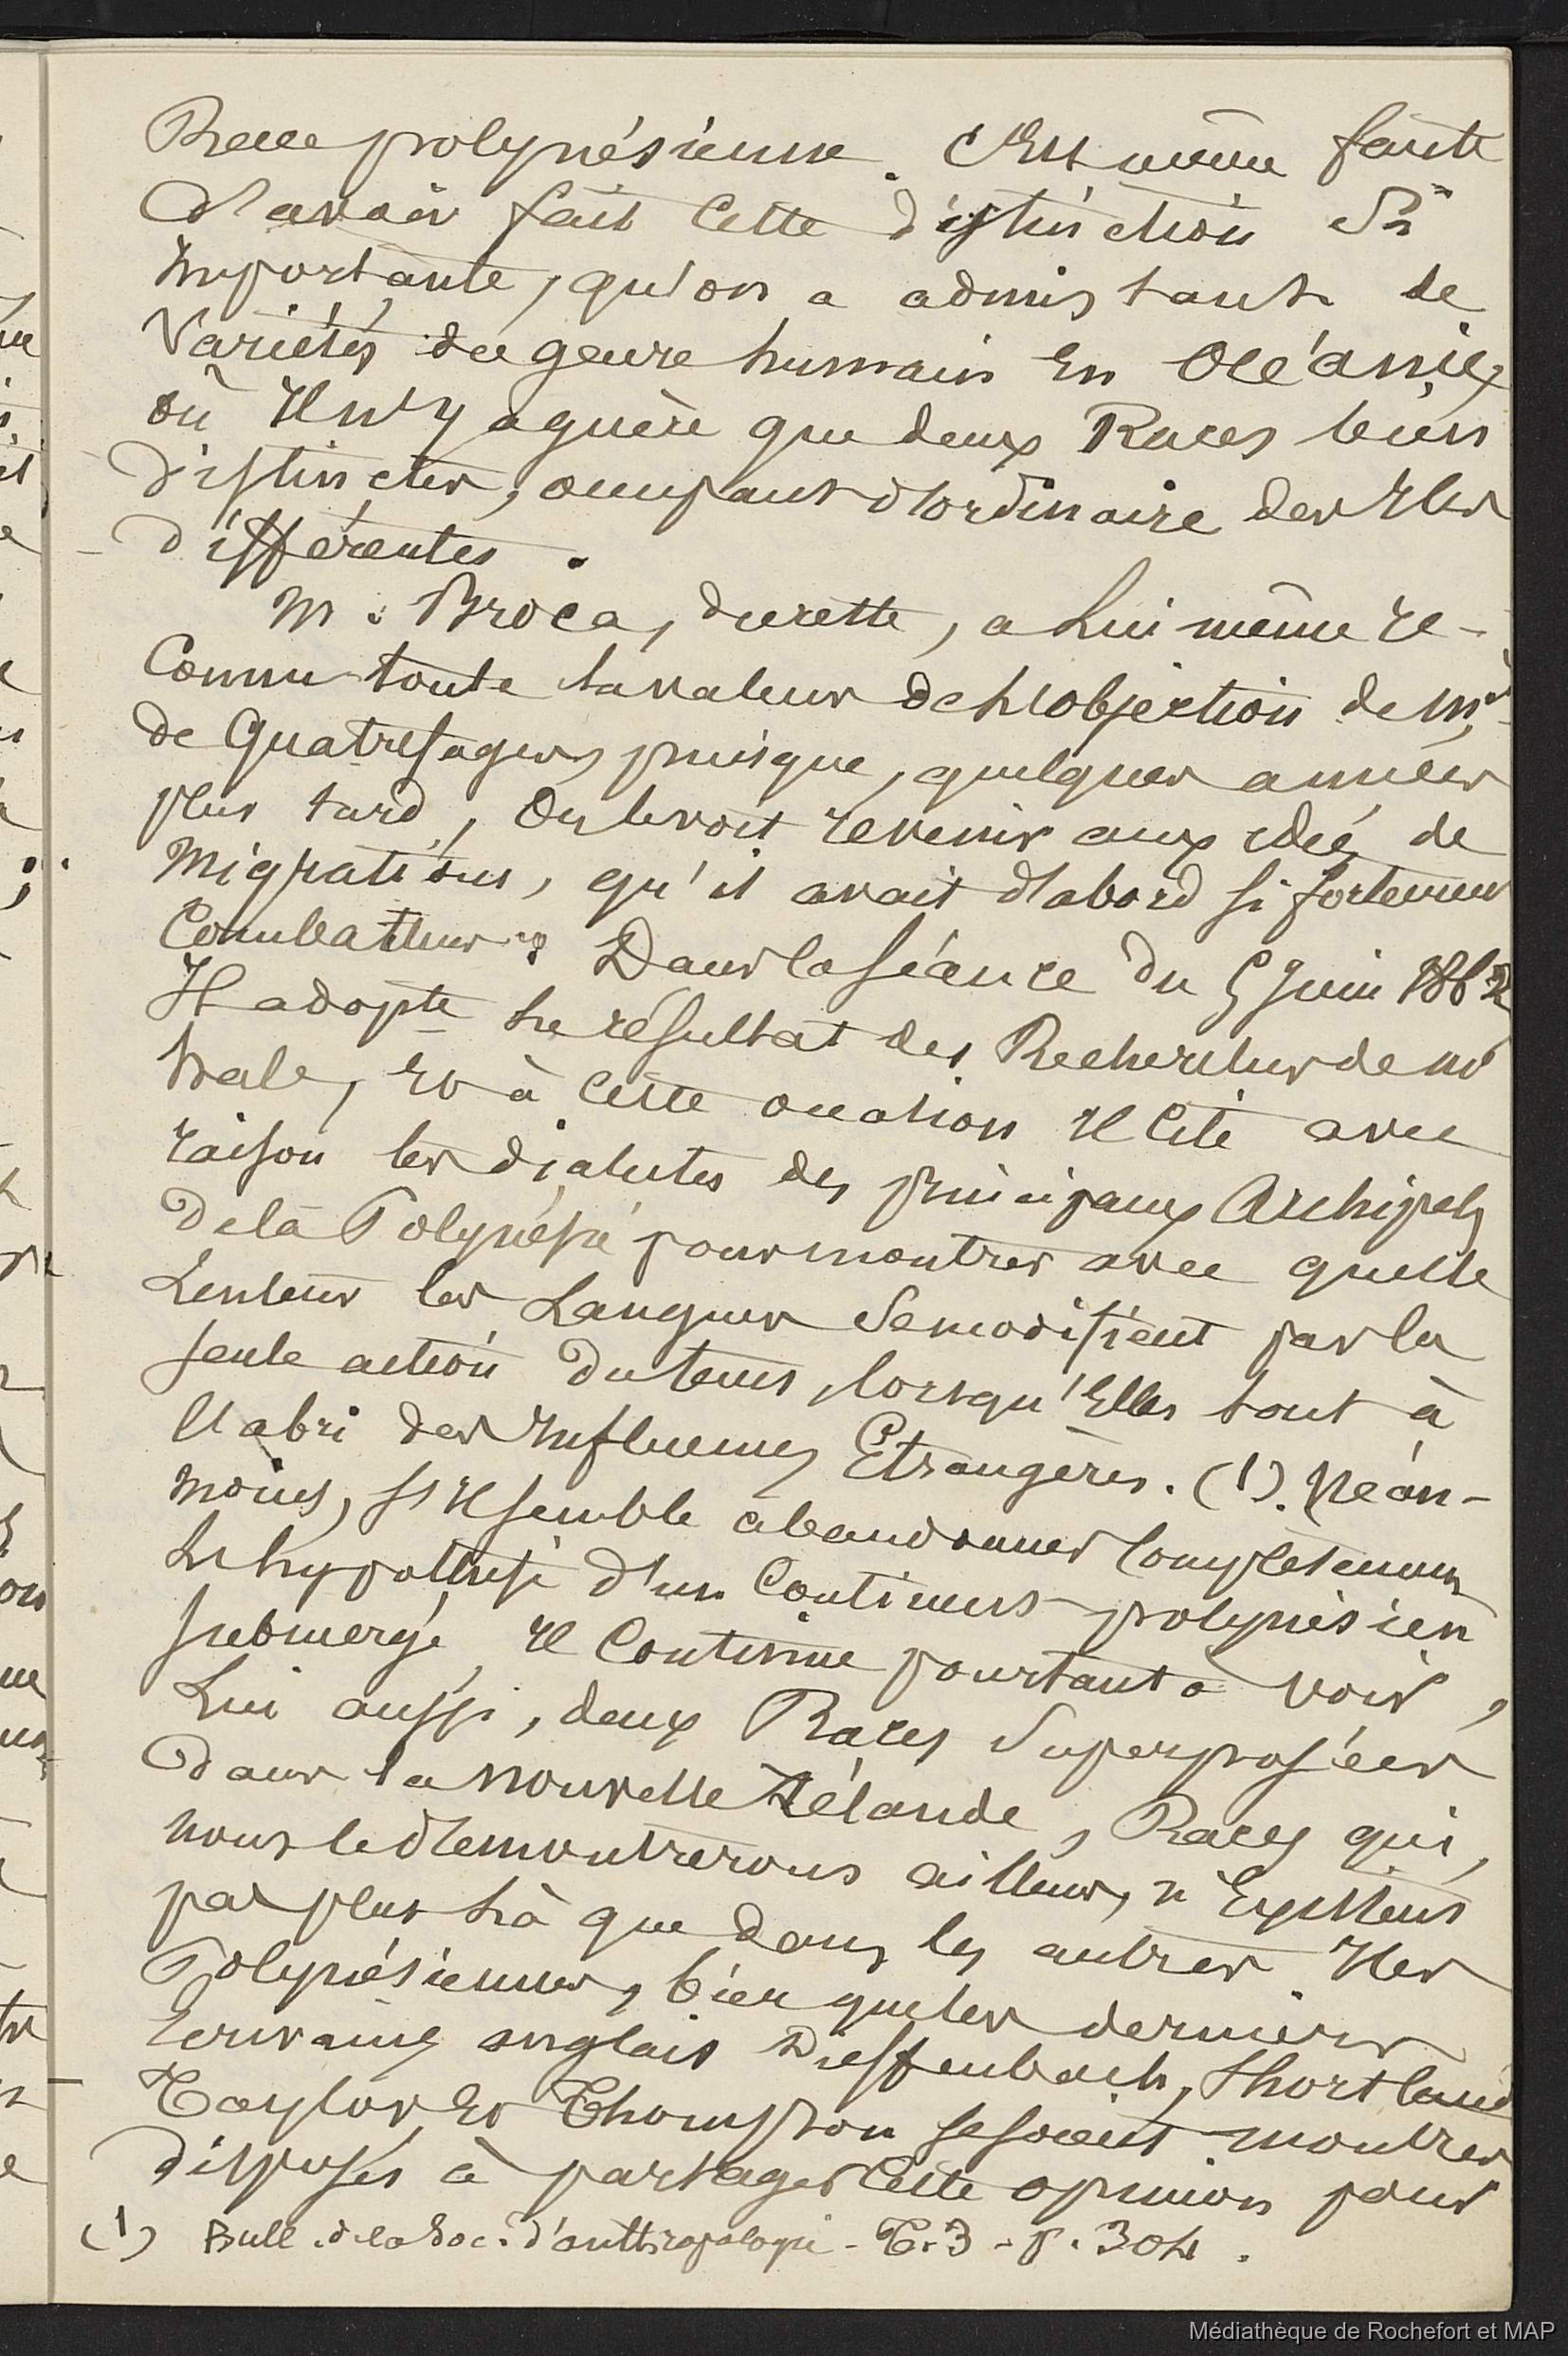 Race polynésienne. C'est même faute
d'avoir fait cette distinction si
importante, qu'on a admis tant de
variétés du genre humain en Océanie,
où il n'y a guère que deux Races bien
distinctes, occupant d'ordinaire des Iles
différentes.
M. Broca, du reste, a lui même re-
connu toute la valeur de l'objection de Mr.
de Quatrefages, puisque, quelques années
plus tard, on le voit revenir aux idée de
migrations, qu'il avait d'abord si fortement
combattues. Dans la séance du 5 juin 1862
Il adopte le résultat des Recherches de Mr
hale, et à cette occasion il cite avec
raison les dialectes des principaux Archipels
de la Polynésie pour montrer avec quelle
Lenteur les Langues se modifient par la
seule action du tems, lorsqu'Elles sont à
l'abri des Influences Etrangères. (1). Néan-
moins, s'il semble abandonner complètement
L'hypothèse d'un Continent polynésien
submergé, il continue pourtant à voir,
Lui aussi, deux Races superposées
dans la nouvelle Zélande, Races qui,
nous le démontrerons ailleurs, n'existent
pas plus là que dans les autres Iles
Polynésiennes, bien que les derniers
Ecrivains anglais Dieffenbach, Shortland
Taylor et Thompson se soient montrés
disposés à partager cette opinion pour
(1) Bull. de la Soc. d'anthropologie - T. 3 - p. 304.
Médiathèque de Rochefort et MAP